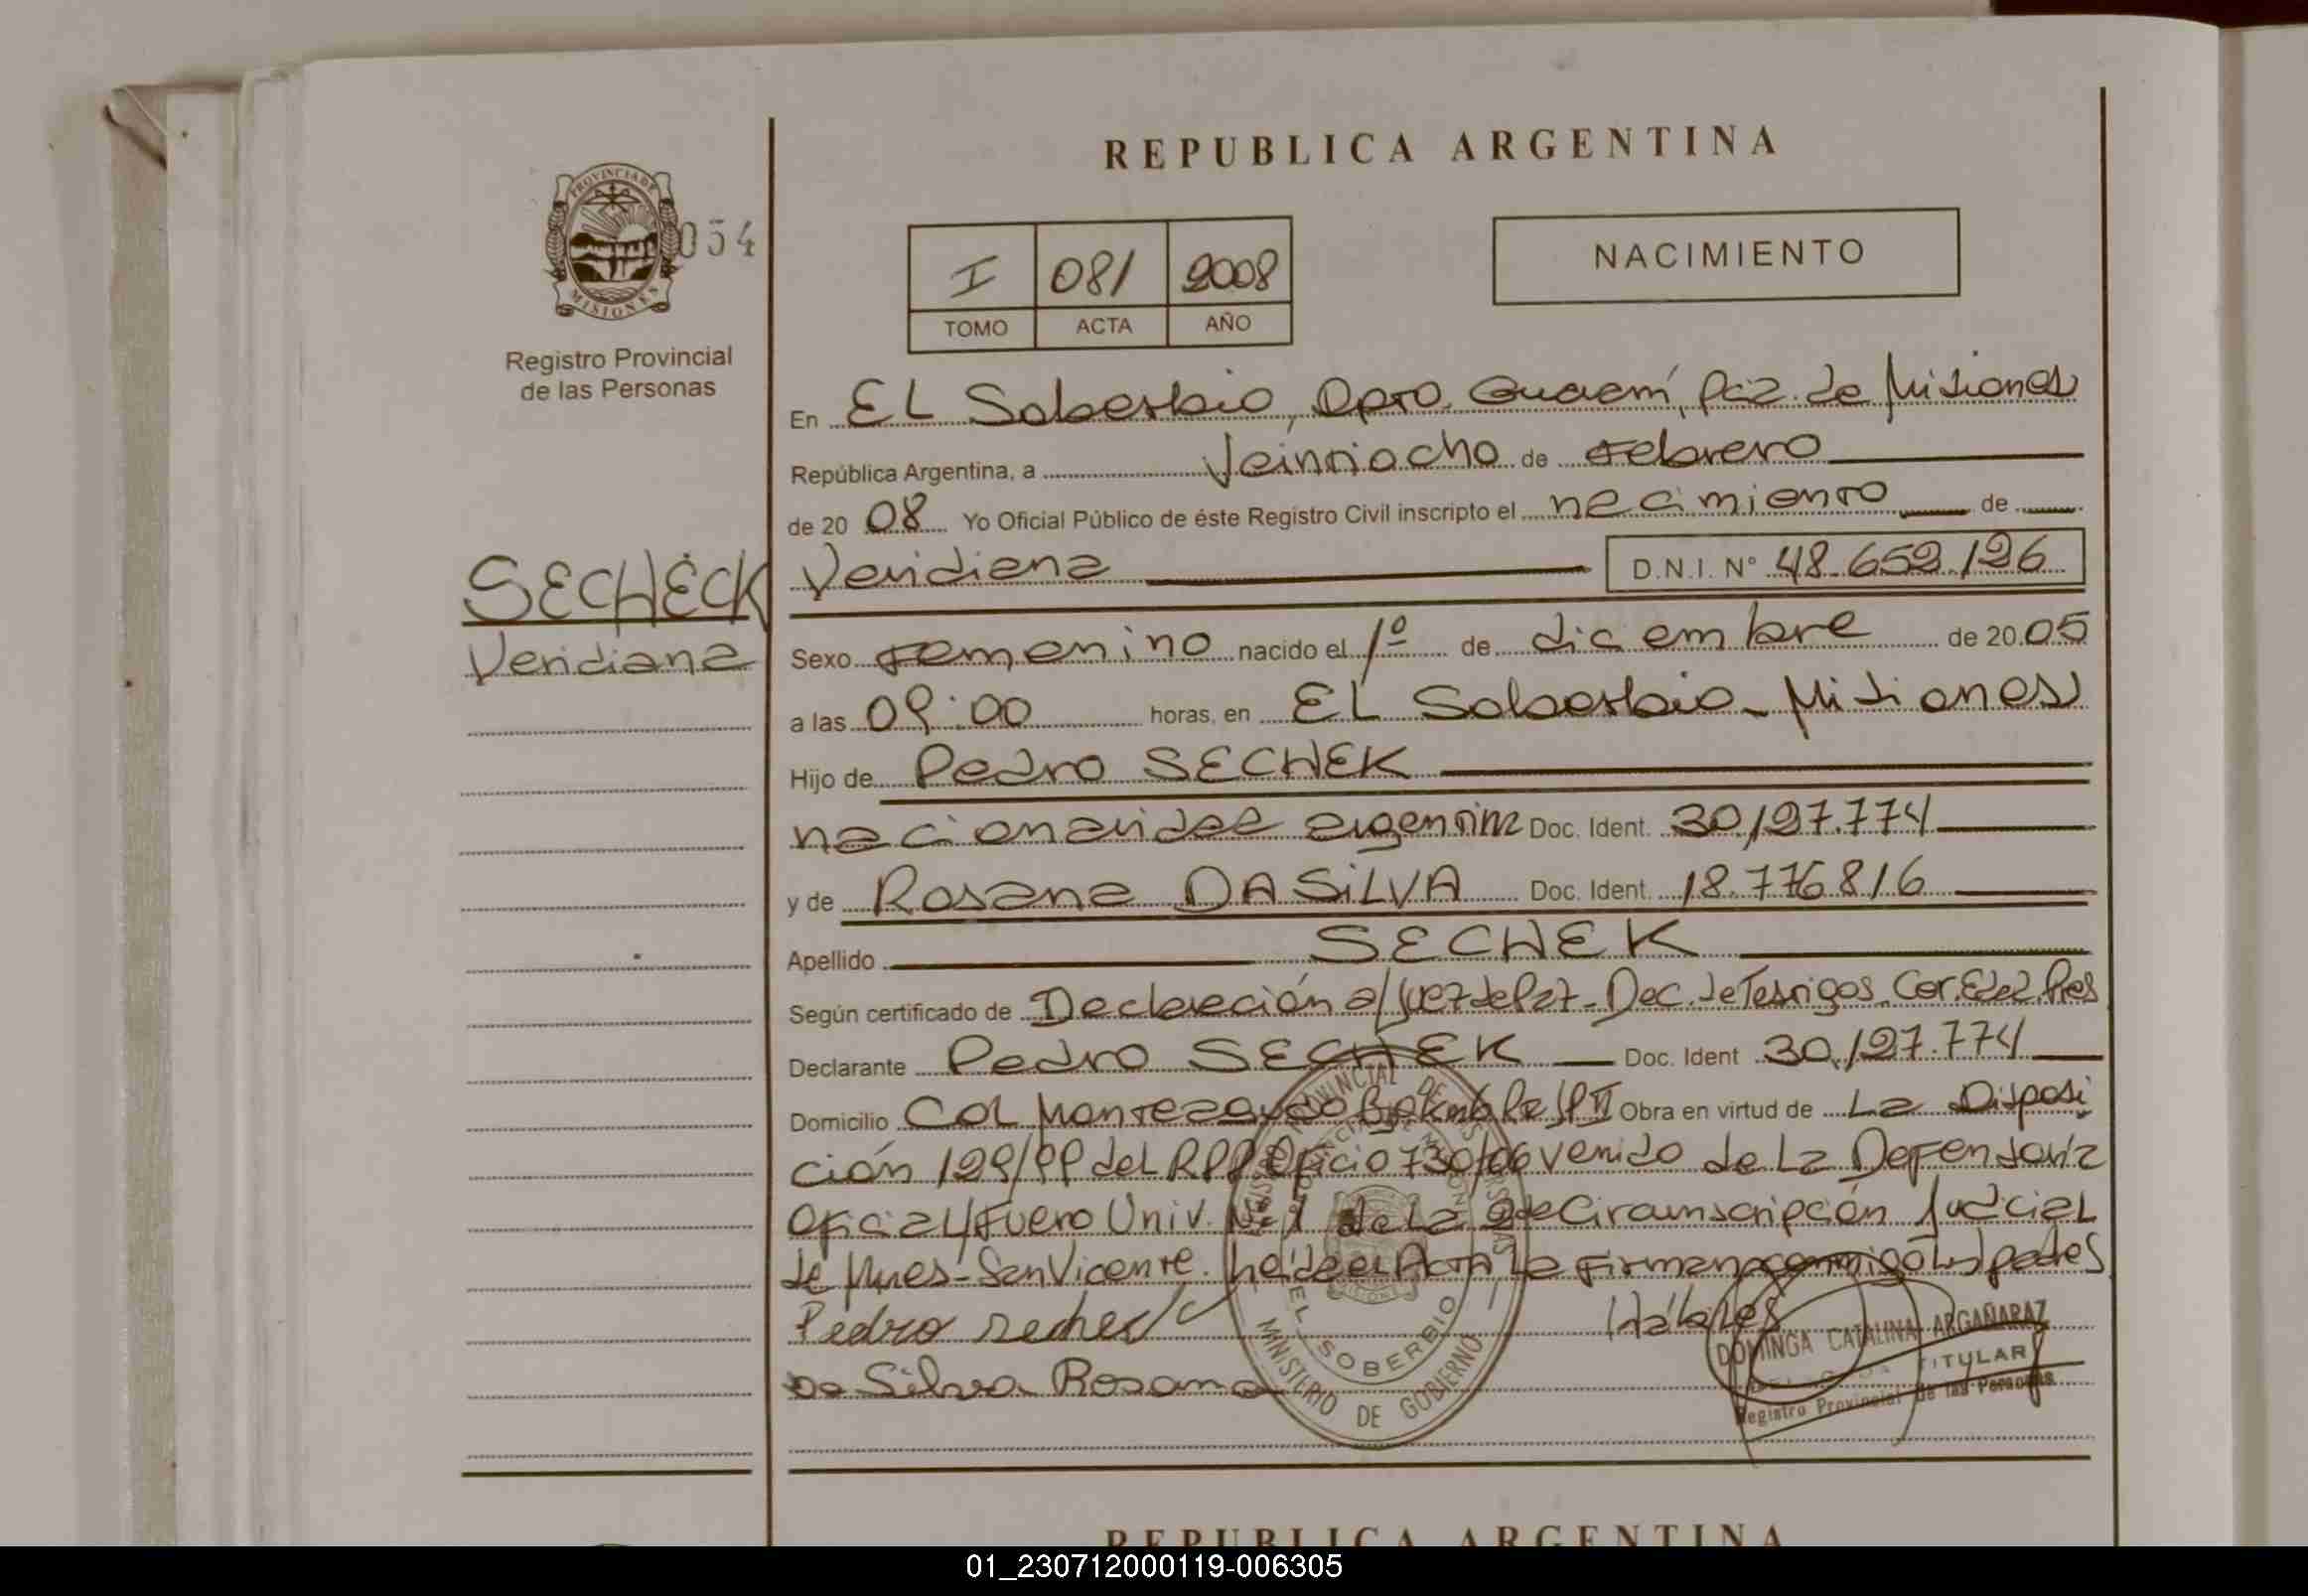 REPUBLICA ARGENTINA
PROVINCIA DE
MISIONES
054
Registro Provincial
de las Personas
I 081 2008
TOMO ACTA AÑO
NACIMIENTO
En EL Soberbio, Dpto. Guaraní, Pcia. de Misiones
República Argentina, a Veintiocho de Febrero
de 20 08 Yo Oficial Público de éste Registro Civil inscripto el nacimiento de
SECHEK
Veridiana
Veridiana D.N.I. N° 48.652.126
Sexo Femenino nacido el 1º de diciembre de 20 05
a las 09:00 horas, en EL Soberbio - Misiones
Hijo de Pedro SECHEK
nacionalidad argentina Doc. Ident. 30.127.774
y de Rosana DA SiLVA Doc. Ident. 18.776.816
Apellido SECHEK
Según certificado de Declaración a/Juez de Paz - Dec. de Testigos. Cer. Edad. Pres
Declarante Pedro SECHEK Doc. Ident 30.127.774
Domicilio Col Monteagudo Obra en virtud de La Disposi
ción 129/99 del RPP Oficio 730/06 venido de La Defensoría
Oficial/Fuero Univ. Nº 1 de La 2da Circunscripción Judicial
de Mnes - San Vicente. Leída el Acta La Firman conmigo los padres
Pedro sechek Hábiles
Da Silva Rosana
EL SOBERBIO
MINISTERIO DE GOBIERNO
DOMINGA CATALINA ARGAÑARAZ
TITULAR
Registro Provincial de las Personas
REPUBLICA ARGENTINA
01_230712000119-006305